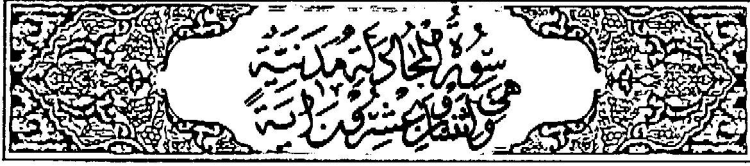 سُورَةُ الْمُجَادَلَةِ مَدَنِيَّةٌ
وَهِيَ اثْنَتَانِ وَعِشْرُونَ اٰيَةً